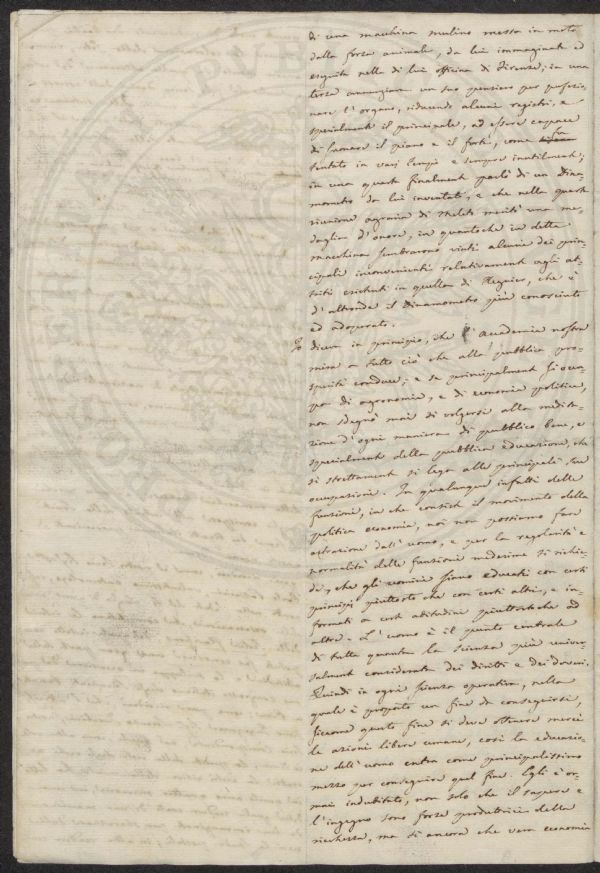 di una macchina mulino messa in moto
dalla forza animale, da lui immaginata ed
eseguita nella di lui officina di Firenze; in una
terza annunziava un suo pensiero per perfezio-
nare l'organo, riducendo alcuni registri, e
specialmente il principale, ad essere capace
di suonare il piano e il forte, come fu
tentato in varj tempi e sempre inutilmente;
in una quarta finalmente parlò di un dina-
mometro da lui inventato, e che nella quarta
riunione agraria di Meleto meritò una me-
daglia d'onore, in quantoche in detta
macchina sembrarono vinti alcuni dei prin-
cipali inconvenienti relativamente agli at-
triti esistenti in quella di Regnier, che è
d'altronde il Dinamometro più conosciuto
ed adoperato.
Io diceva in principio, che l'Accademia nostra
mira a tutto ciò che alla pubblica pro-
sperità conduce; e se principalmente si occu-
pa di agronomia, e di economia politica,
non sdegnò mai di volgersi alla medita-
zione d'ogni maniera di pubblico bene, e
specialmente della pubblica educazione, che
sì strettamente si lega alle principali sue
occupazioni. In qualunque infatti delle
funzioni, in che consiste il movimento della
politica economia, noi non possiamo fare
astrazione dall'uomo, e per la regolarità e
normalità delle funzioni medesime si richie-
de, che gli uomini siano educati con certi
principj piuttosto che con certi altri, e in-
formati a certe attitudini piuttostoche ad
altre. L'uomo è il punto centrale
di tutta quanta la scienza più univer-
salmente considerata dei diritti e dei doveri.
Quindi in ogni scienza operativa, nella
quale è proposto un fine da conseguirsi,
siccome questo fine si deve ottenere mercè
le azioni libere umane, così la educazio-
ne dell'uomo entra come principalissimo
mezzo per conseguire quel fine. Egli è or-
mai indubitato, non solo che il sapere e
l'ingegno sono forze produttrici della
ricchezza, ma di ancora che vera economia